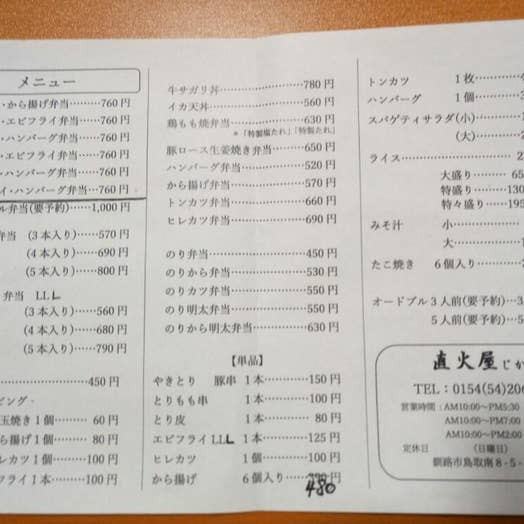 メニュー
・から揚げ弁当………760円
・エビフライ弁当………760円
・ハンバーグ弁当………760円
・エビフライ弁当………760円
・ハンバーグ弁当………760円
イ・ハンバーグ弁当…760円
ル弁当(要予約)……1,000円
弁当 (3本入り)……570円
(4本入り)……690円
(5本入り)……800円
弁当 LLL
(3本入り)……560円
(4本入り)……680円
(5本入り)……790円
450円
ピング・
玉焼き1個……… 60円
ら揚げ1個……… 80円
レカツ1個………100円
フライ1本………100円
牛サガリ丼……………………780円
イカ天丼………………………560円
鶏もも焼弁当…………………630円
*「特製塩たれ」「特製たれ」
豚ロース生姜焼き弁当………650円
ハンバーグ弁当………………520円
から揚げ弁当…………………570円
トンカツ弁当…………………660円
ヒレカツ弁当…………………690円
のり弁当………………………450円
のりから弁当…………………530円
のりカツ弁当…………………550円
のり明太弁当…………………550円
のりから明太弁当……………630円
【単品】
やきとり 豚串 1本…………150円
とりもも串 1本…………100円
とり皮 1本………… 80円
エビフライLLL 1本…………125円
ヒレカツ 1個…………100円
から揚げ 6個入り……
480
トンカツ 1枚………
ハンバーグ 1個………
スパゲティサラダ(小)
(大)
ライス
大盛り
特盛り
特々盛り
みそ汁 小
大
たこ焼き 6個入り
オードブル3人前(要予約)
5人前(要予約)
直火屋
TEL：0154(54)206
営業時間：AM10:00〜PM5:30
AM10:00〜PM7:00
AM10:00〜PM2:00
定休日 (日曜日)
釧路市鳥取南8-5-